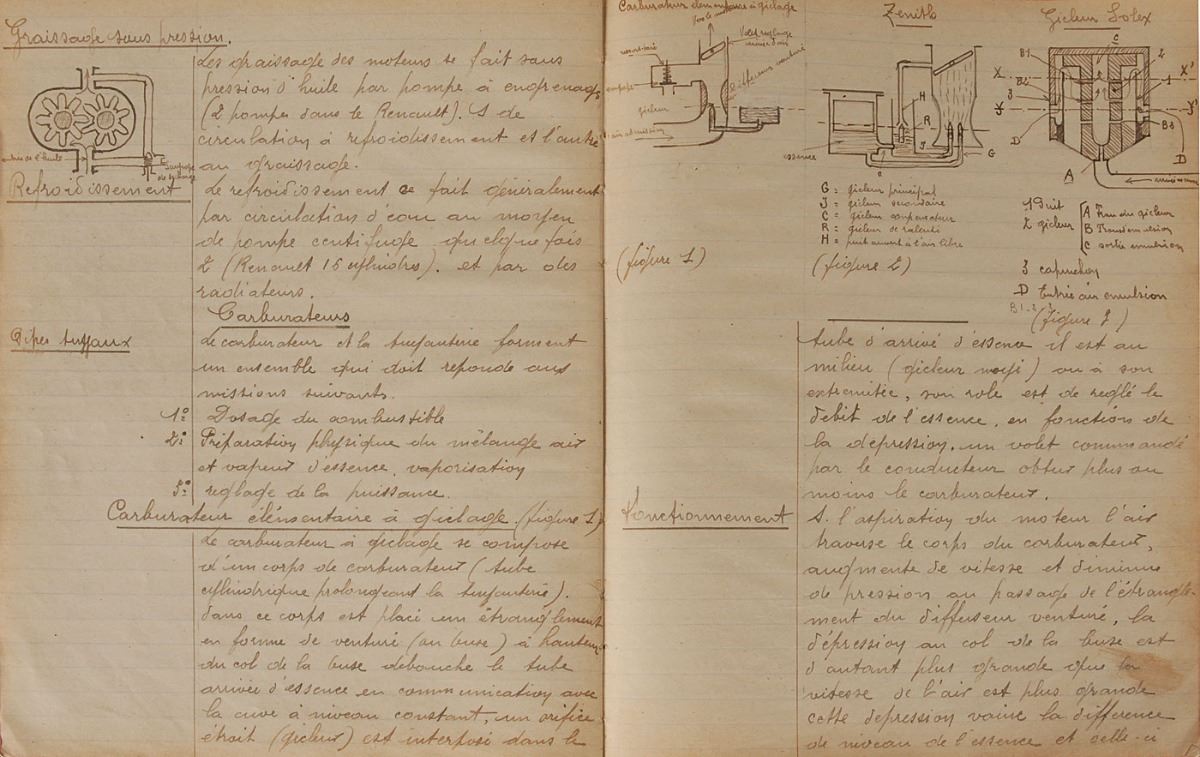 Graissage sous pression.
Les graissage des moteurs se fait sous
pression d'huile par pompe à engrenage
(2 pompes dans le Renault). 1 de
circulation à refroidissement et l'autre
au graissage.
Refroidissement
Le refroidissement ce fait généralement
par circulation d'eau au moyen
de pompe centifuge quelque fois
2 (Renault 16 cylindres). et par des
radiateurs.
Carburateurs
Pipes tuyaux
Le carburateur et la tuyauterie forment
un ensemble qui doit reponde aux
missions suivants.
1º Dosage du combustible
2º Préparation physique du mélange air
et vapeur d'essence, vaporisation
3º reglage de la puissance.
Carburateur élémentaire à giclage (figure 1)
Le carburateur à giclage se compose
d'un corps de carburateur (tube
cylindrique prolongeant la tuyauterie).
dans ce corps est placé un étranglement
en forme de venturé (ou buse) à hauteur
du col de la buse debouche le tube
arrivée d'essence en communication avec
la cuve à niveau constant, un orifice
étroit (gicleur) est interposé dans le
Carburateur élémentaire à giclage
gicleur
air admission
(figure 1)
Zenith
H
R
J
G
essence
G = gicleur principal
J = gicleur secondaire
C = gicleur compensateur
R = gicleur de ralenti
H = puit ouvert à l'air libre
(figure 2)
Gicleur Solex
C
B1
2
X
X'
B2
3
1
Y
Y'
B3
D
D
A
1 Puit
2 gicleur
A Trou du gicleur
B Trous emulsion
C sortie emulsion
3 capuchon
D Entrée air emulsion
(figure 3)
tube d'arrivé d'essence il est au
milieu (gicleur noyé) ou à son
extremitée, son role est de reglé le
debit de l'essence, en fonction de
la dépression. un volet commandé
par le conducteur obtur plus ou
moins le carburateur.
Fonctionnement
S. l'aspiration du moteur l'air
traverse le corps du carburateur,
augmente de vitesse et diminue
de pression au passage de l'étrangle-
ment du diffuseur venturé, la
dépression au col de la buse est
d'autant plus grande que la
vitesse de l'air est plus grande
cette depression vainc la difference
de niveau de l'essence et celle-ci